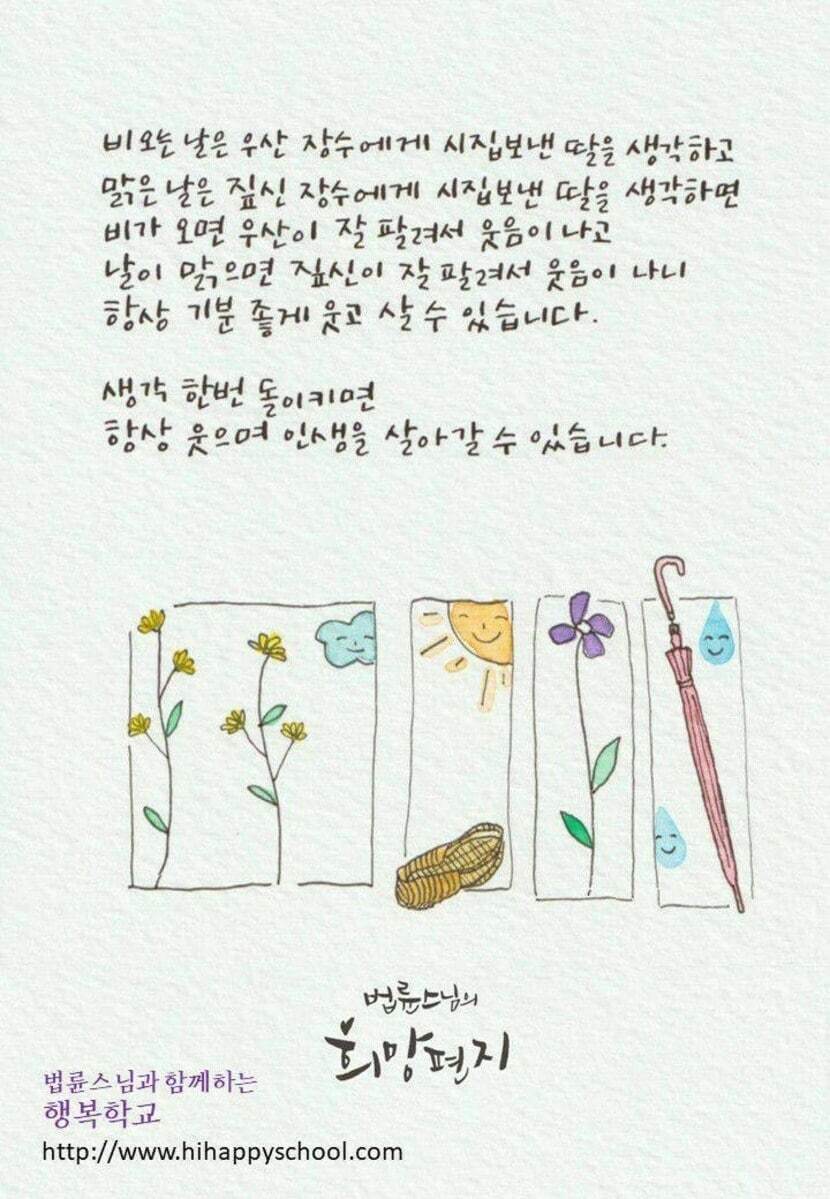 비오는 날은 우산 장수에게 시집보낸 딸을 생각하고
맑은 날은 짚신 장수에게 시집보낸 딸을 생각하면
비가 오면 우산이 잘 팔려서 웃음이 나고
날이 맑으면 짚신이 잘 팔려서 웃음이 나니
항상 기분 좋게 웃고 살 수 있습니다.
생각 한번 돌이키면
항상 웃으며 인생을 살아갈 수 있습니다.
법륜스님의
희망편지
법륜스님과 함께하는
행복학교
http://www.hihappyschool.com